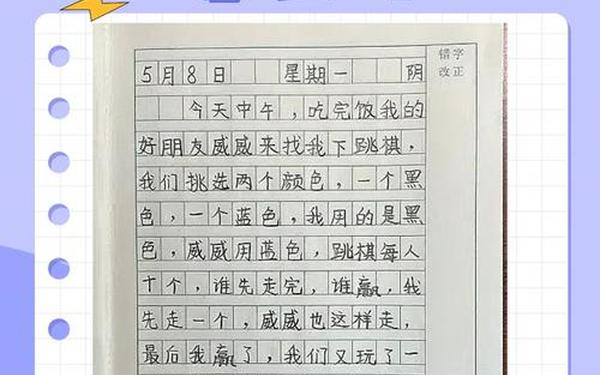 错字
改正
5月8日 星期一 阴
今天中午，吃完饭我的
好朋友威威来找我下跳棋，
我们挑选两个颜色，一个黑
色，一个蓝色，我用的是黑
色，威威用蓝色，跳棋每人
十个，谁先走完，谁赢，我
先走一个，威威也这样走，
最后我赢了，我们又玩了一